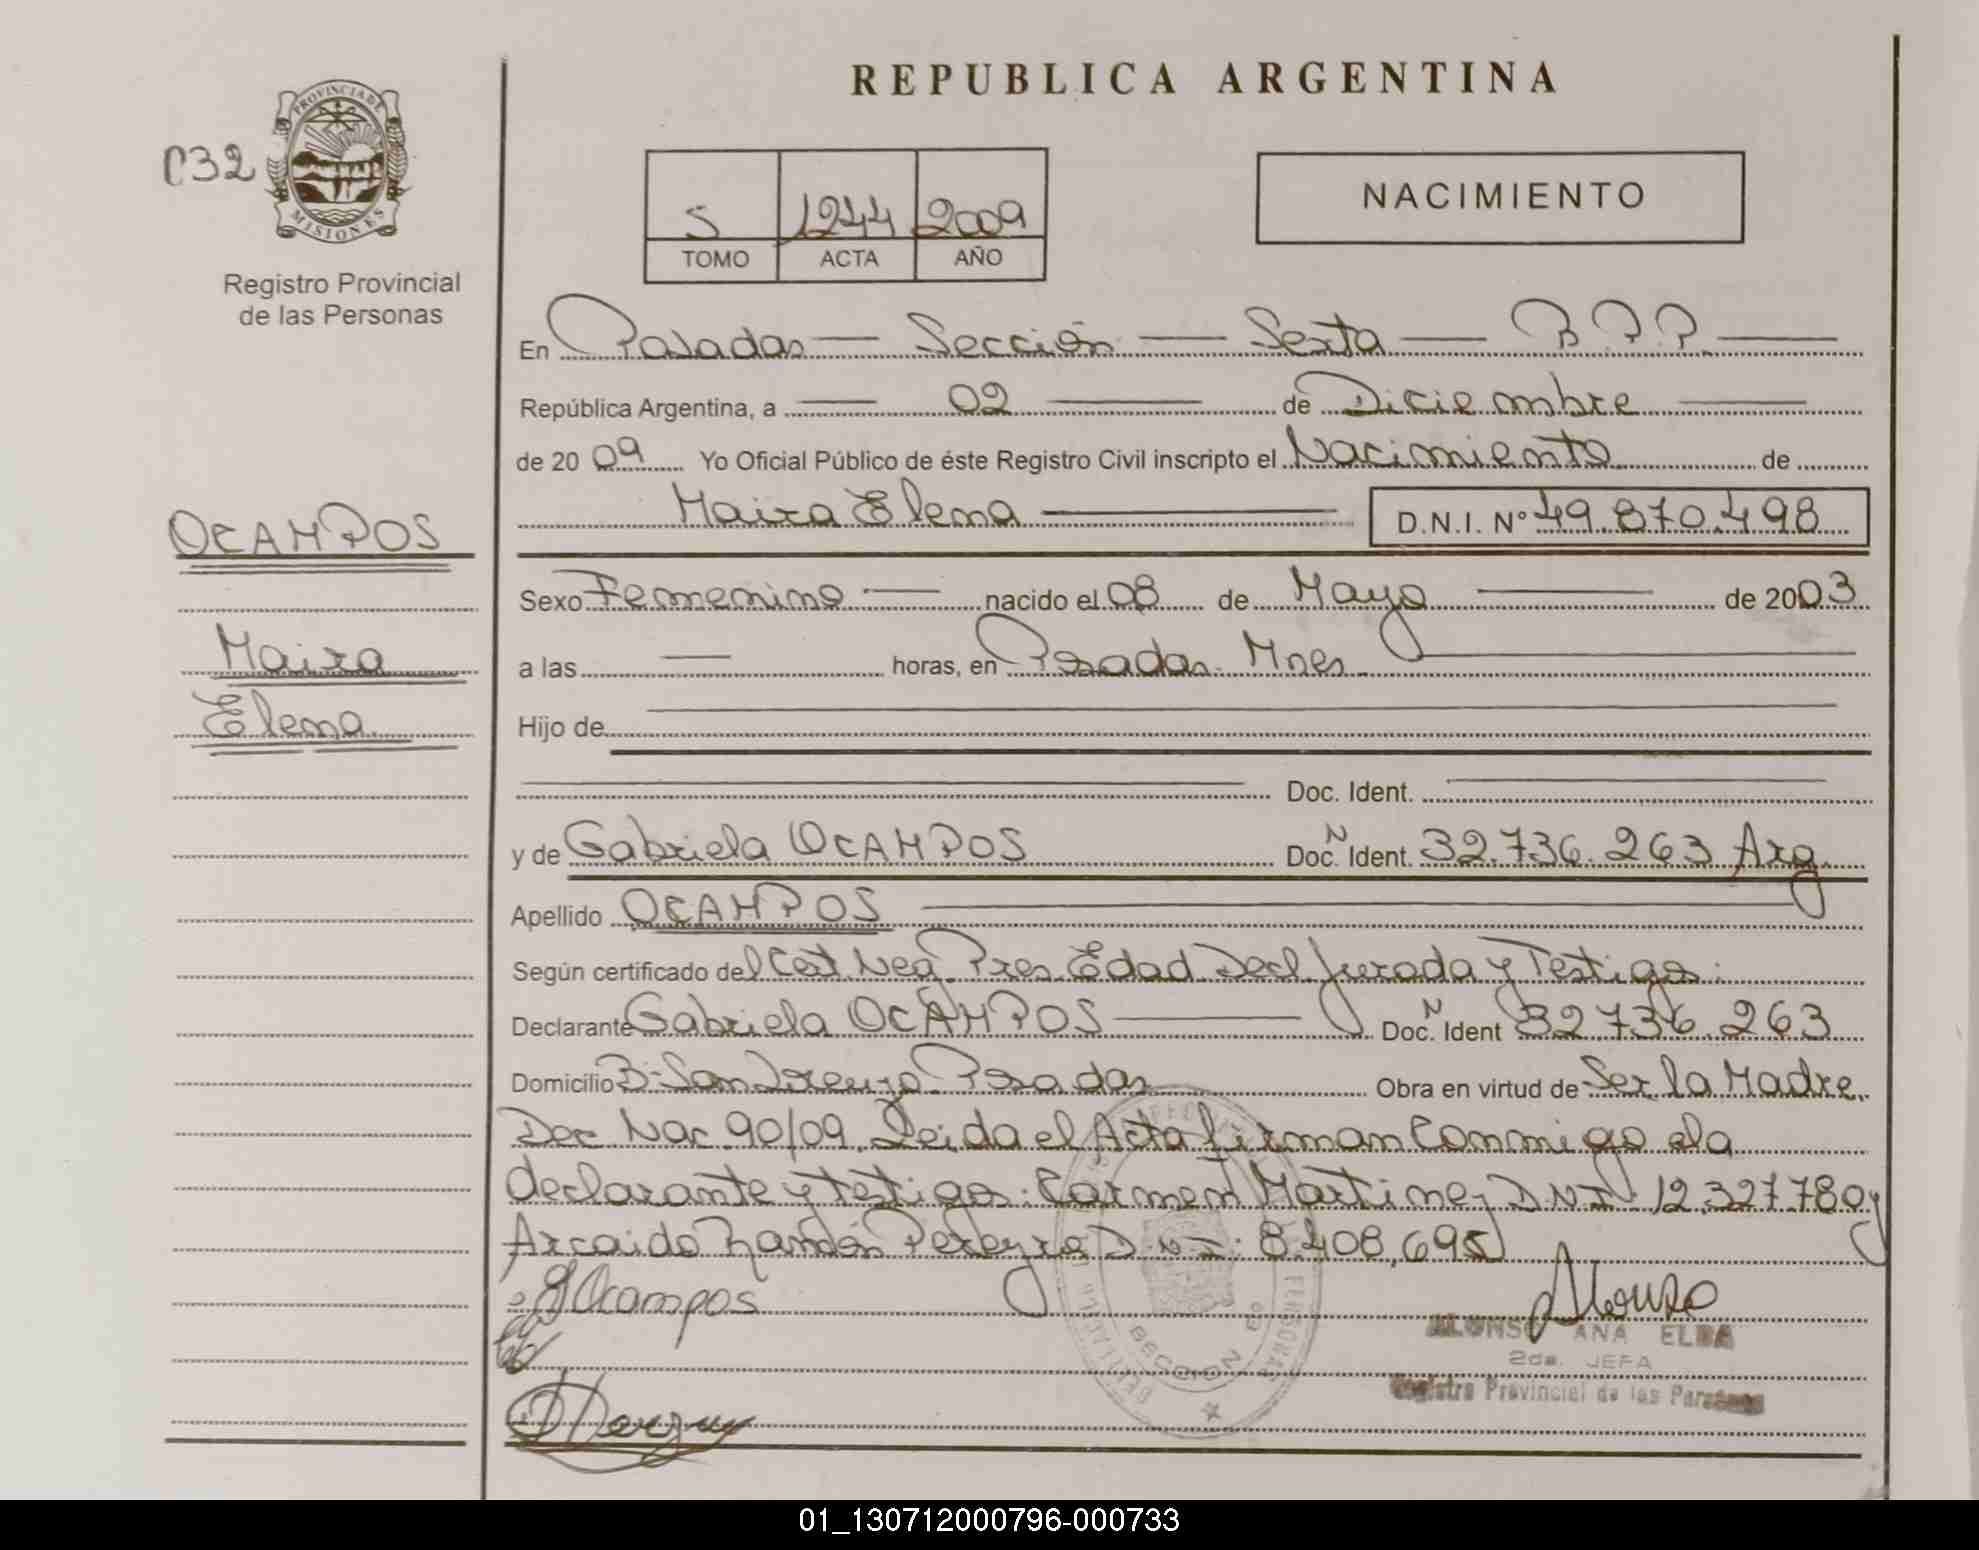 REPUBLICA ARGENTINA
C32
PROVINCIA DE
MISIONES
Registro Provincial
de las Personas
5 1244 2009
TOMO ACTA AÑO
NACIMIENTO
En Posadas — Sección — Sexta — B.P.P. —
República Argentina, a — 02 — de Diciembre —
de 20 09 Yo Oficial Público de éste Registro Civil inscripto el Nacimiento de
Maira Elena — D.N.I. Nº 49.870.498
OCAMPOS
Maira
Elena
Sexo Femenino — nacido el 08 de Mayo — de 2003
a las — horas, en Posadas. Mnes —
Hijo de —
— Doc. Ident. —
y de Gabriela OCAMPOS Doc. N Ident. 32.736.263 Arg
Apellido OCAMPOS —
Según certificado del Cert Neg. Pres. Edad Decl Jurada y Testigos:
Declarante Gabriela OCAMPOS — Doc. N Ident 32.736.263
Domicilio Bº San Lorenzo Posadas Obra en virtud de Ser la Madre.
Dec Nac 90/09. Leida el Acta firman Conmigo ela
declarante y testigos: Carmen Martinez D.N.I. 12.327.780 y
Ramón Pereyra D.N.I: 8.408.695
Ocampos
ALONSO ANA ELBA
2da. JEFA
Registro Provincial de las Personas
SECCION
01_130712000796-000733